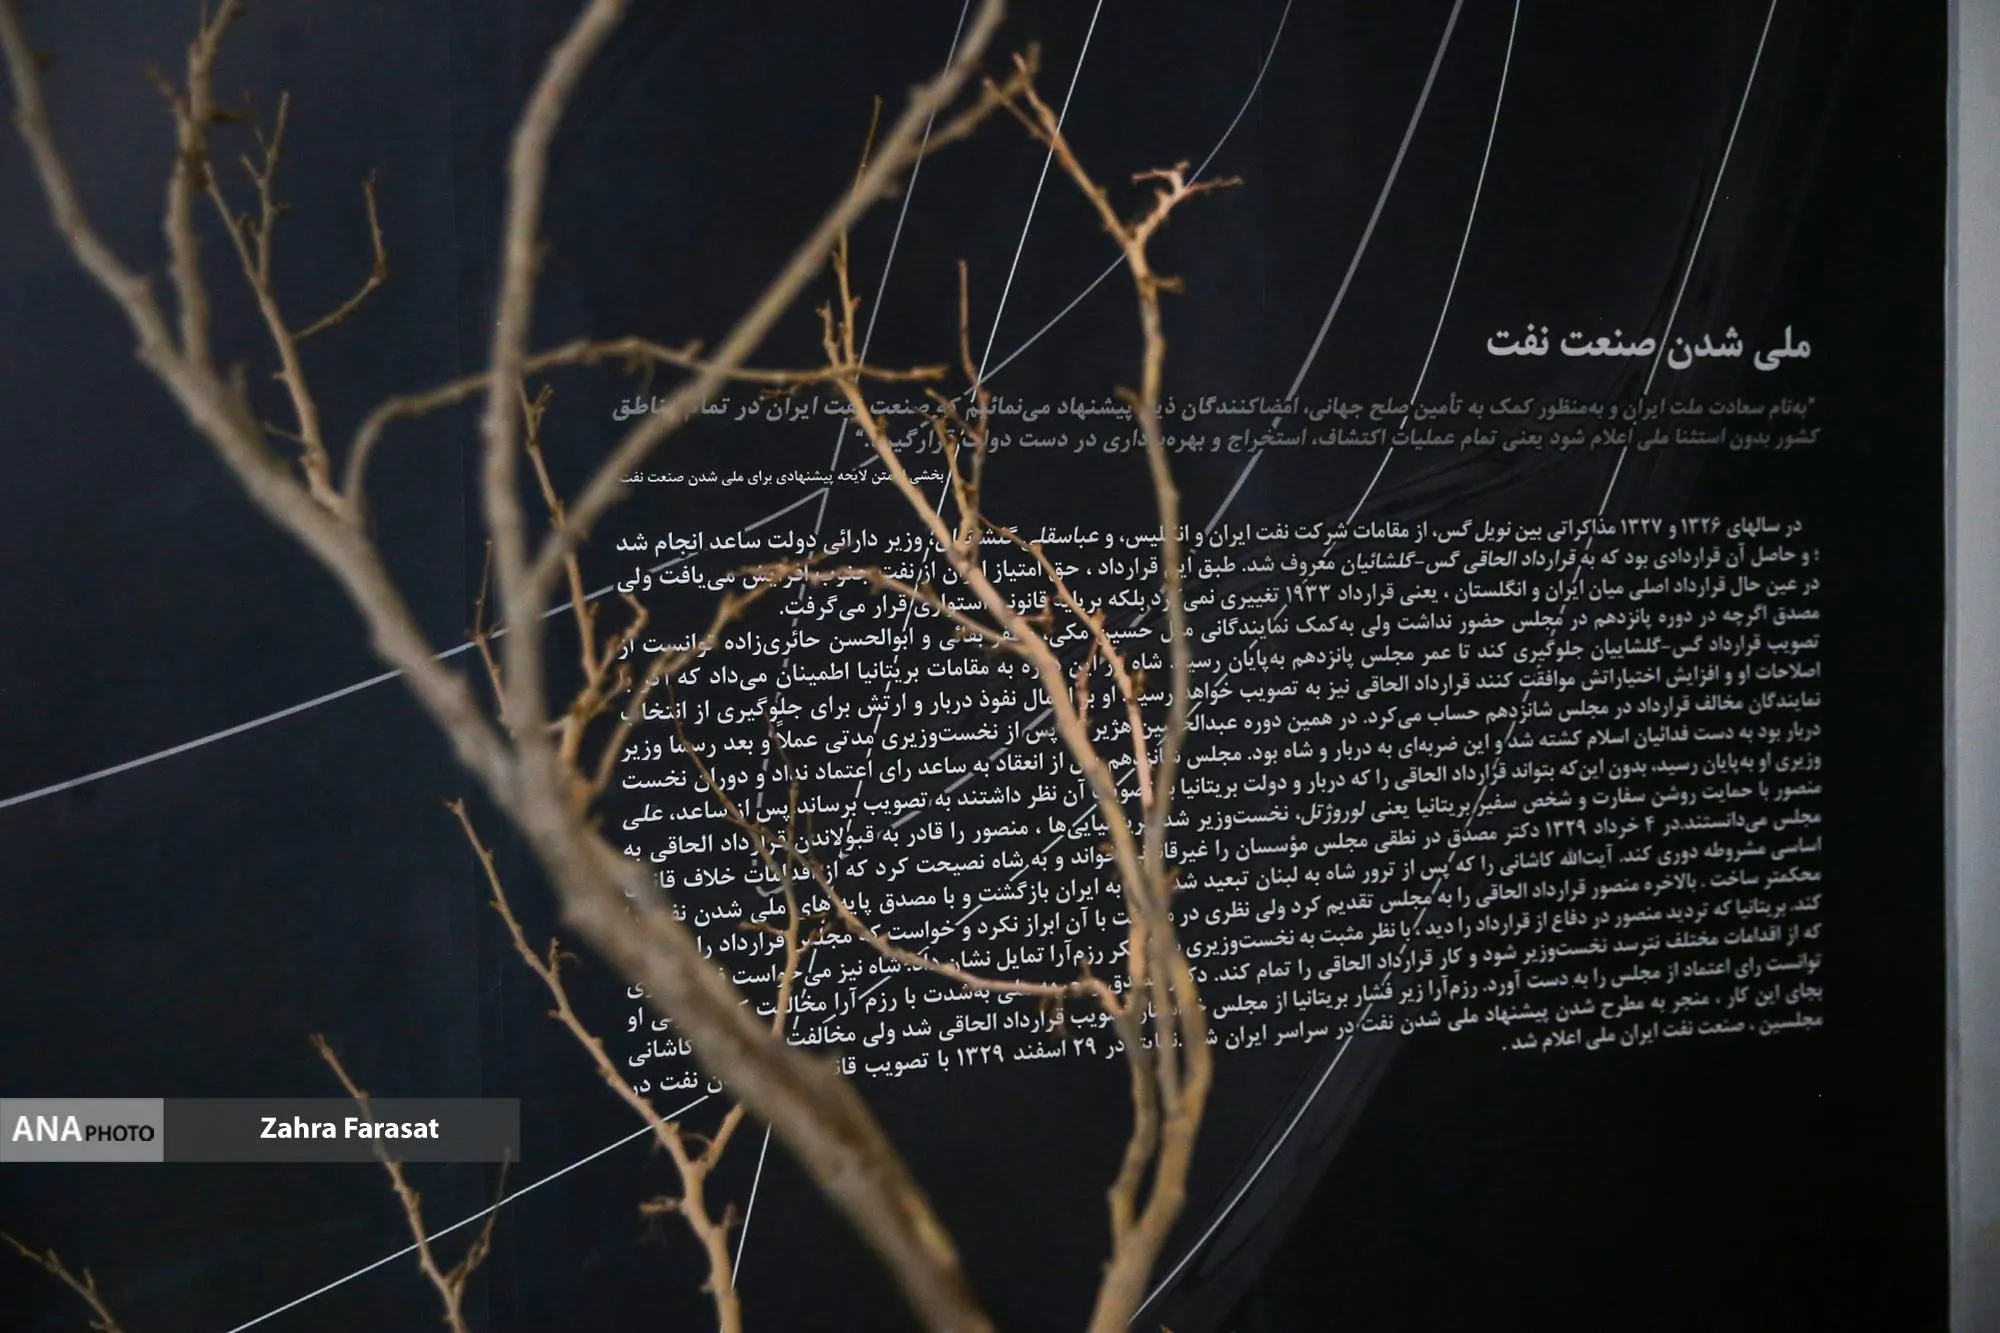 ملی شدن صنعت نفت
"به‌نام سعادت ملت ایران و به‌منظور کمک به تأمین صلح جهانی، امضاکنندگان پیشنهاد می‌نمائیم که صنعت نفت ایران در تمام مناطق
کشور بدون استثنا ملی اعلام شود یعنی تمام عملیات اکتشاف، استخراج و بهره‌برداری در دست دولت قرارگیرد."
بخشی از متن لایحه پیشنهادی برای ملی شدن صنعت نفت
در سالهای ۱۳۲۶ و ۱۳۲۷ مذاکراتی بین نویل گس، از مقامات شرکت نفت ایران و انگلیس، و عباسقلی گلشائیان، وزیر دارائی دولت ساعد انجام شد
؛ و حاصل آن قراردادی بود که به قرارداد الحاقی گس-گلشائیان معروف شد. طبق این قرارداد ، حق امتیاز ایران از نفت جنوب افزایش می‌یافت ولی
در عین حال قرارداد اصلی میان ایران و انگلستان ، یعنی قرارداد ۱۹۳۳ تغییری نمی‌کرد بلکه بر پایه قانونی استواری قرار می‌گرفت.
مصدق اگرچه در دوره پانزدهم در مجلس حضور نداشت ولی به‌کمک نمایندگانی مثل حسین مکی، بقائی و ابوالحسن حائری‌زاده توانست از
تصویب قرارداد گس-گلشاییان جلوگیری کند تا عمر مجلس پانزدهم به‌پایان رسید. شاه در این دوره به مقامات بریتانیا اطمینان می‌داد که اگر با
اصلاحات او و افزایش اختیاراتش موافقت کنند قرارداد الحاقی نیز به تصویب خواهد رسید. او بر اعمال نفوذ دربار و ارتش برای جلوگیری از انتخاب
نمایندگان مخالف قرارداد در مجلس شانزدهم حساب می‌کرد. در همین دوره عبدالحسین هژیر که پس از نخست‌وزیری مدتی عملاً و بعد رسما وزیر
دربار بود به دست فدائیان اسلام کشته شد و این ضربه‌ای به دربار و شاه بود. مجلس شانزدهم پس از انعقاد به ساعد رای اعتماد نداد و دوران نخست
وزیری او به‌پایان رسید، بدون این‌که بتواند قرارداد الحاقی را که دربار و دولت بریتانیا به تصویب آن نظر داشتند به تصویب برساند. پس از ساعد، علی
منصور با حمایت روشن سفارت و شخص سفیر بریتانیا یعنی لوروژتل، نخست‌وزیر شد. بریتانیایی‌ها ، منصور را قادر به قبولاندن قرارداد الحاقی به
مجلس می‌دانستند.در ۴ خرداد ۱۳۲۹ دکتر مصدق در نطقی مجلس مؤسسان را غیرقانونی خواند و به شاه نصیحت کرد که از اقدامات خلاف قانون
اساسی مشروطه دوری کند. آیت‌الله کاشانی را که پس از ترور شاه به لبنان تبعید شده به ایران بازگشت و با مصدق پایه های ملی شدن نفت را
محکمتر ساخت . بالاخره منصور قرارداد الحاقی را به مجلس تقدیم کرد ولی نظری در با آن ابراز نکرد و خواست که مجلس قرارداد را
کند. بریتانیا که تردید منصور در دفاع از قرارداد را دید ، با نظر مثبت به نخست‌وزیری رزم‌آرا تمایل نشان داد. شاه نیز می‌خواست
که از اقدامات مختلف نترسد نخست‌وزیر شود و کار قرارداد الحاقی را تمام کند. ملی به‌شدت با رزم آرا مخالفت او
توانست رای اعتماد از مجلس را به دست آورد. رزم‌آرا زیر فشار بریتانیا از مجلس تصویب قرارداد الحاقی شد ولی مخالفت کاشانی
بجای این کار ، منجر به مطرح شدن پیشنهاد ملی شدن نفت در سراسر ایران در ۲۹ اسفند ۱۳۲۹ با تصویب نفت در
مجلسین ، صنعت نفت ایران ملی اعلام شد .
ANA PHOTO
Zahra Farasat